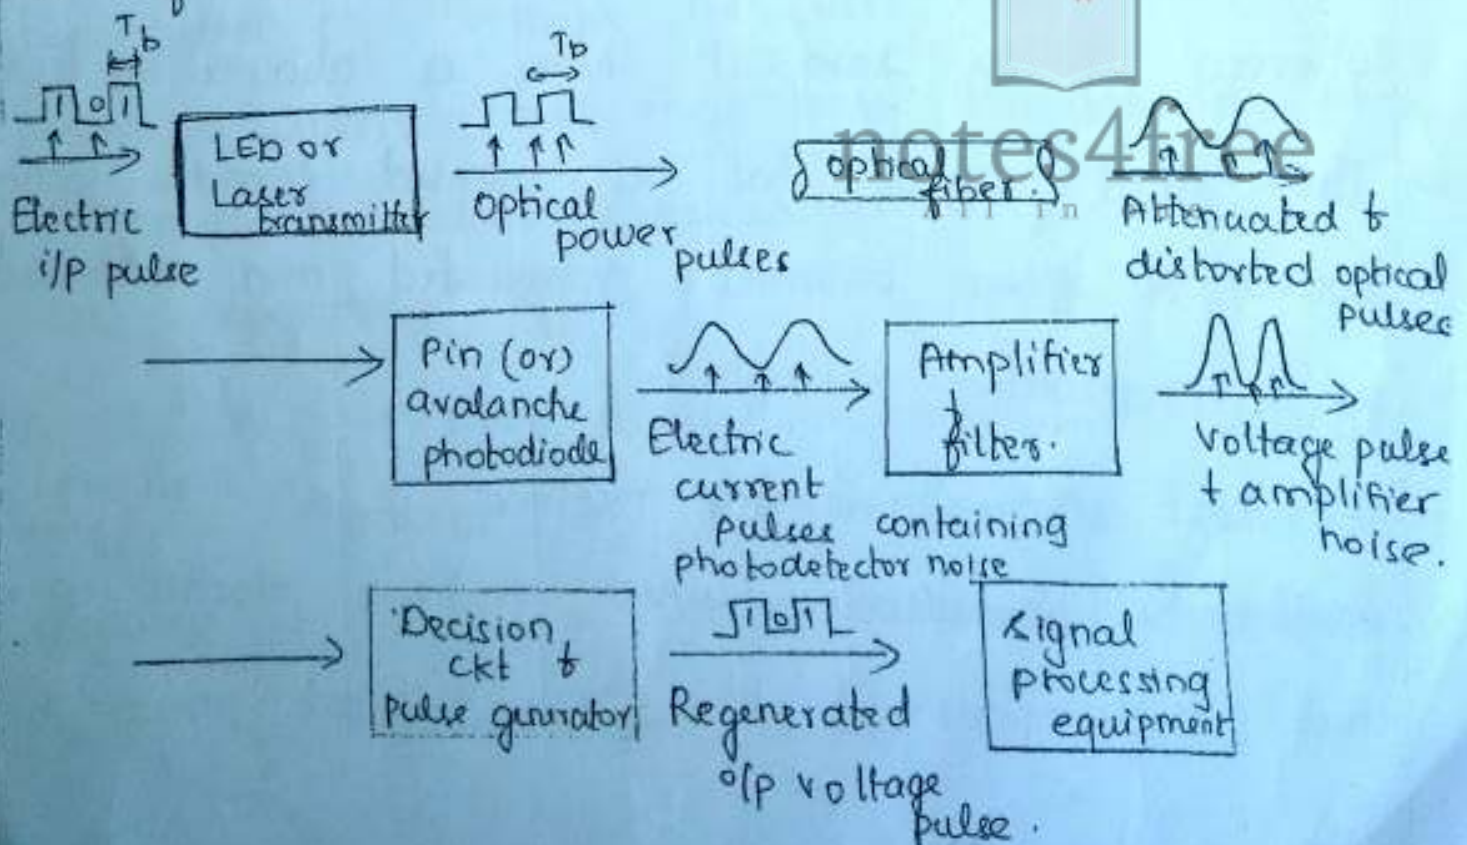 Tb
Tb
1 0 1
LED or
Laser
transmitter
Electric
i/p pulse
optical
power
pulses
optical
fiber.
notes4free
All in
Attenuated &
distorted optical
pulses
Pin (or)
avalanche
photodiode
Electric
current
pulses containing
photodetector noise
Amplifier
&
filter.
Voltage pulse
+ amplifier
noise.
Decision
ckt &
pulse genrator
1 0 1
Regenerated
o/p voltage
pulse.
Signal
processing
equipment